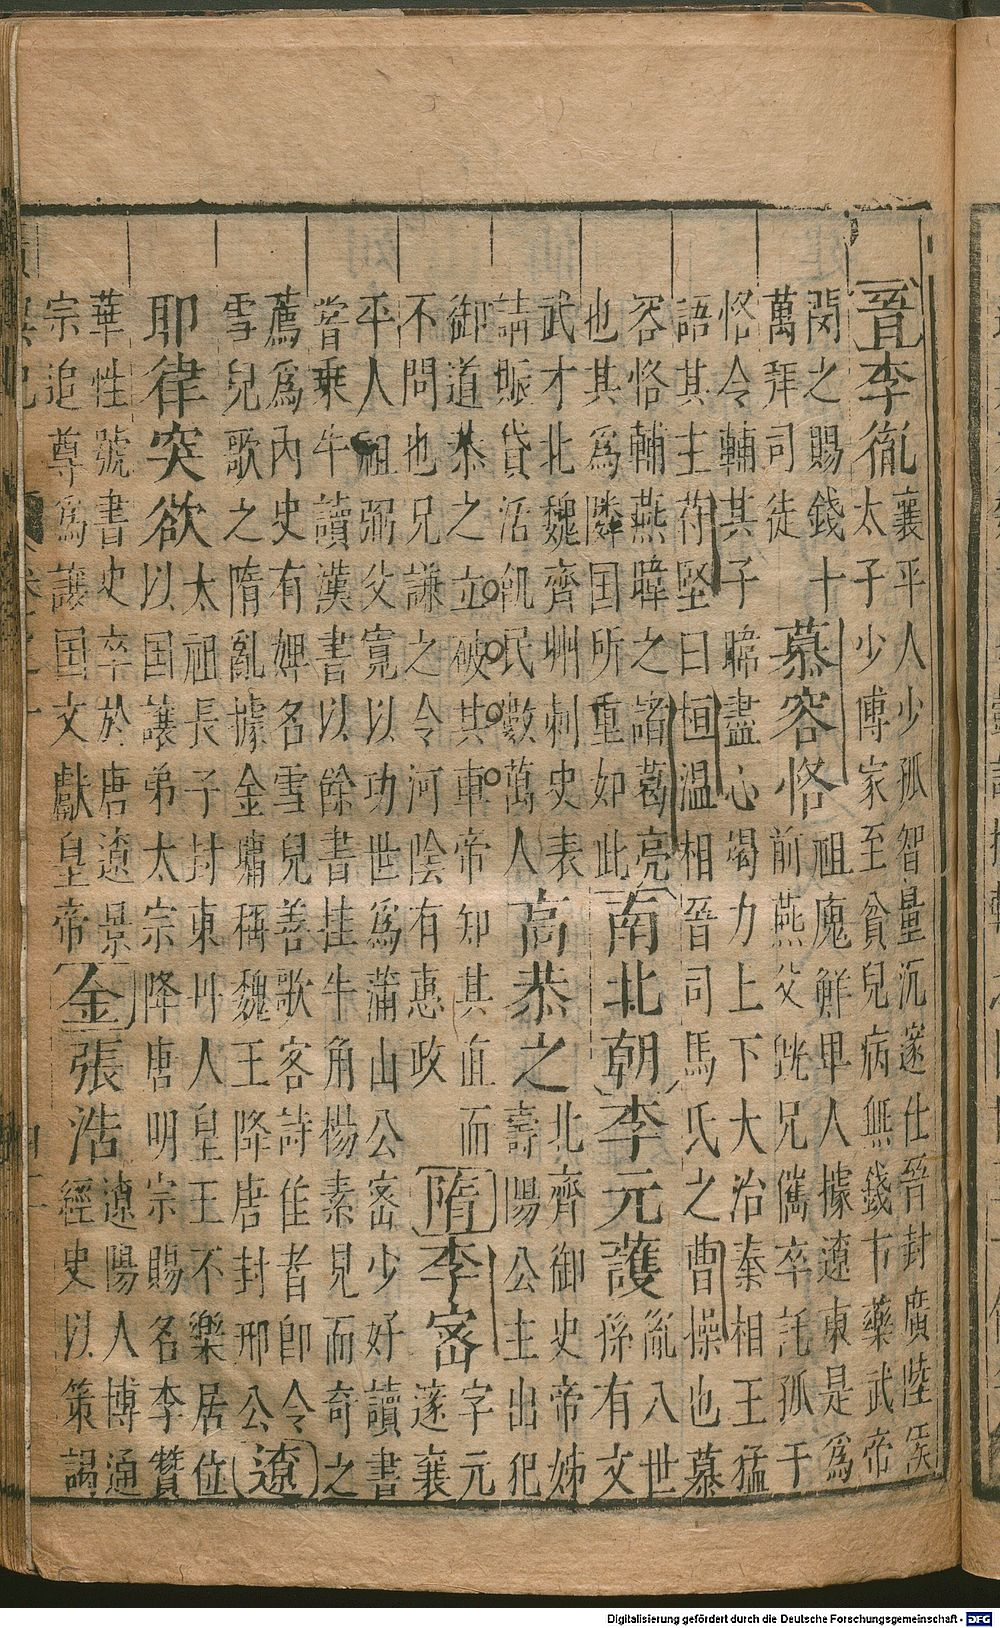 晉李胤襄平人少孤智量沉邃仕晉封廣陸侯太子少傅家至貧兒病無錢市藥武帝
聞之賜錢十萬拜司徒慕容恪祖廆鮮卑人據遼東是為前燕父皝兄儁卒託孤于
恪令輔其子暐盡心竭力上下大治秦相王猛語其主苻堅曰桓溫相晉司馬氏之曹操也慕
容恪輔燕暐之諸葛亮也其為隣国所重如此南北朝李元護胤八世孫有文
武才北魏齊州刺史表請賑貸活飢民數萬人高恭之北齊御史帝姊壽陽公主出犯
御道恭之立破其車帝知其直而不問也兄謙之令河陰有惠政隋李密字元邃襄
平人祖弼父寬以功世為蒲山公密少好讀書嘗乗牛讀漢書以餘書挂牛角楊素見而奇之
薦為內史有婢名雪兒善歌客詩佳者即令雪兒歌之隋亂據金墉稱魏王降唐封邢公遼
耶律突欲太祖長子封東丹人皇王不樂居位以国讓弟太宗降唐明宗賜名李贊
華性號書史卒於唐遼景宗追尊為讓国文獻皇帝金張浩遼陽人博通經史以策謁
Digitalisierung gefördert durch die Deutsche Forschungsgemeinschaft - DFG